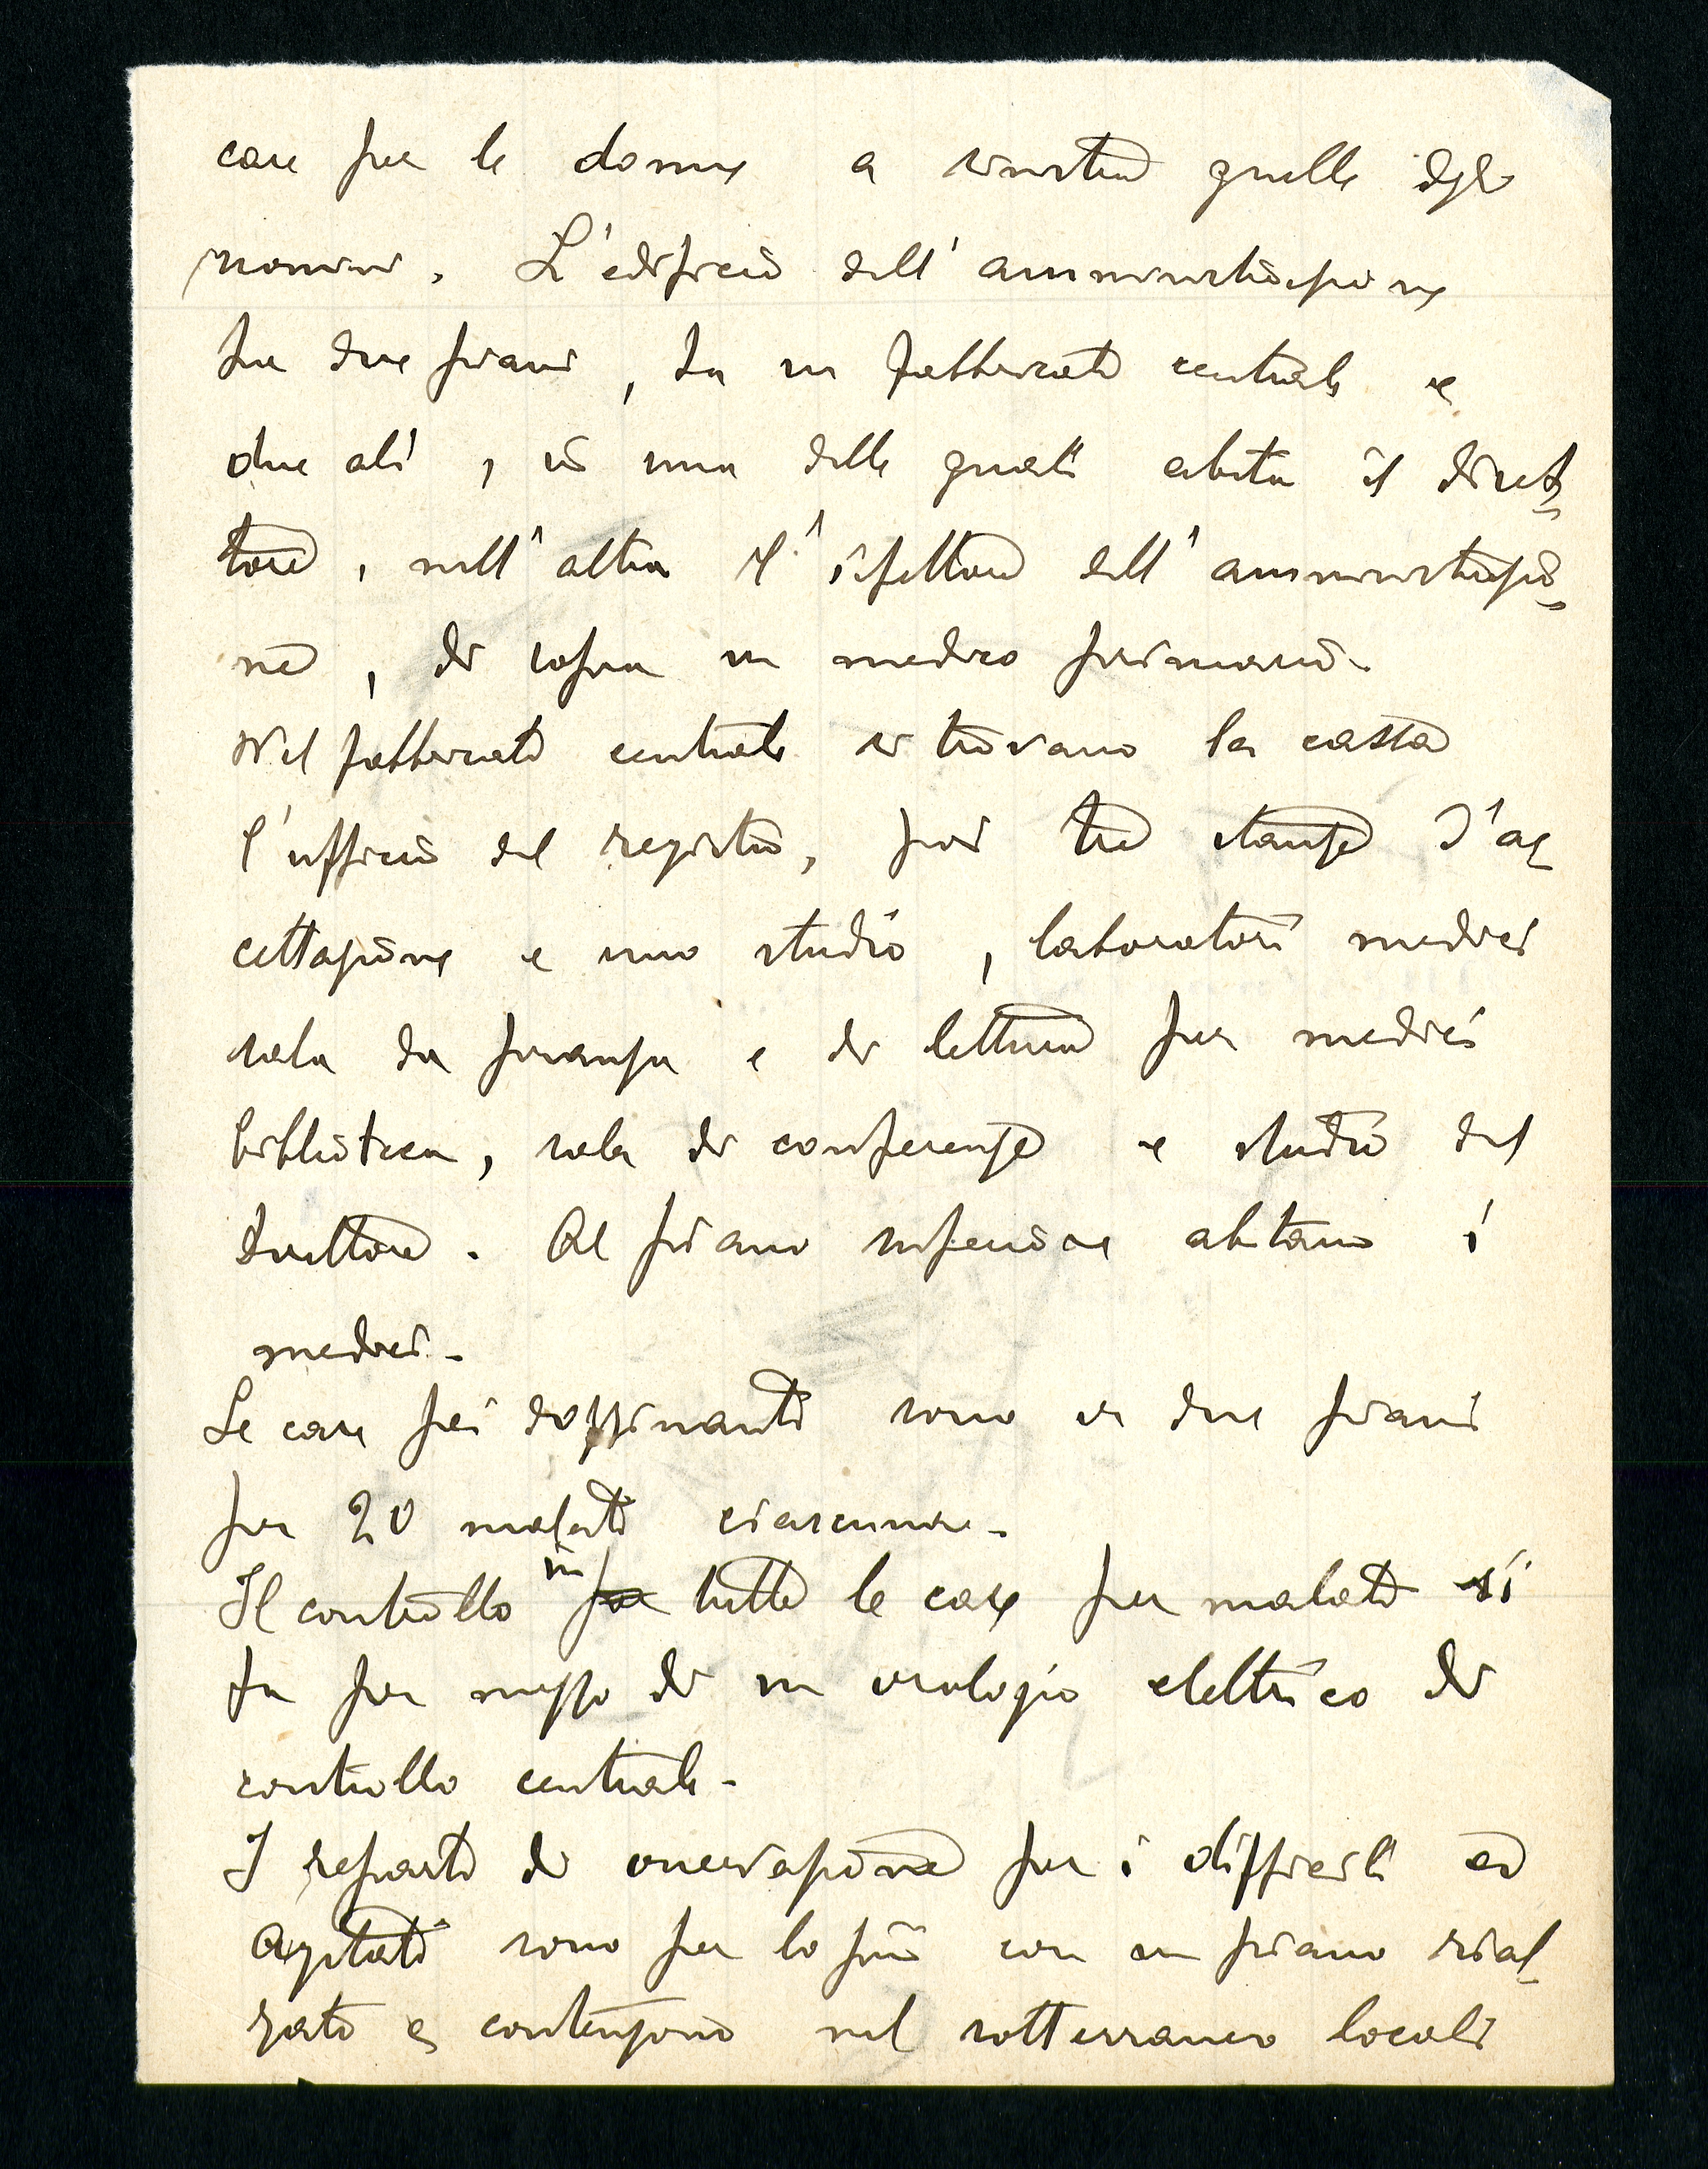 case per le donne a sinistra quelle degli
uomini. L'edificio dell'amministrazione
ha due piani, ha un fabbricato centrale e
due ali, in una delle quali abita il diret-
tore, nell'altra l'ispettore dell'amministrazio-
ne, di sopra un medico primario.
Nel fabbricato centrale si trovano la cassa
l'ufficio del registro, poi tre stanze d'ac
cettazione e uno studio, laboratori medici
sala da pranzo e di lettura per medici
biblioteca, sala di conferenze e studio del
direttore. Al piano superiore abitano i
medici.
Le case pei dozzinanti sono a due piani
per 20 malati ciascuna.
Il controllo in per tutte le case per malati si
fa per mezzo di un orologio elettrico di
controllo centrale.
I reparti di osservazione per i difficili ed
agitati sono per lo più con un piano rial-
zato e contengono nel sotterraneo locali